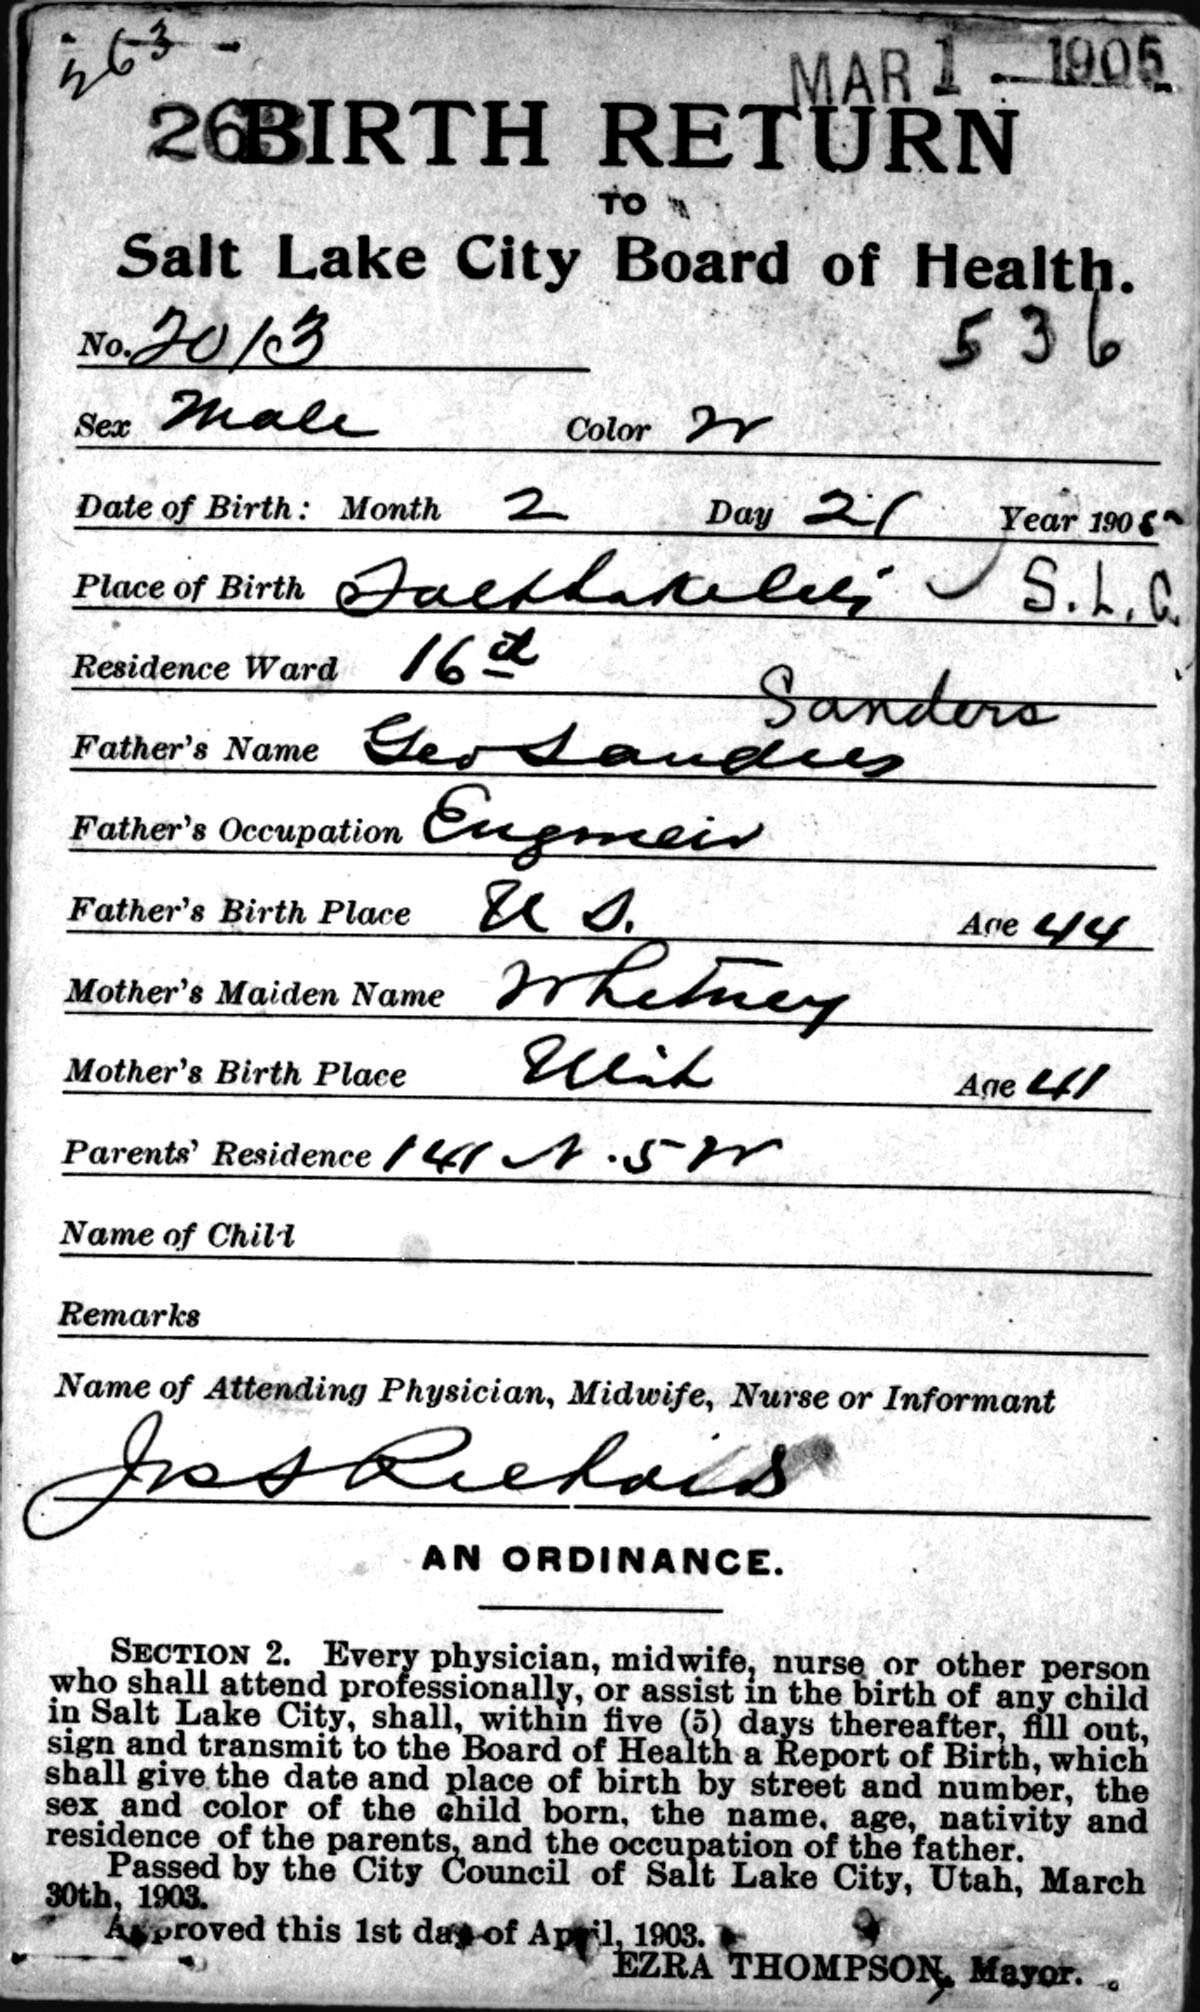 263
MAR 1 - 1905
263 BIRTH RETURN
TO
Salt Lake City Board of Health.
No. 2013 536
Sex Male Color W
Date of Birth: Month 2 Day 21 Year 1905
Place of Birth Salt Lake City S.L.C.
Residence Ward 16th
Sanders
Father's Name Geo Sanders
Father's Occupation Engineer
Father's Birth Place U S. Age 44
Mother's Maiden Name Whitney
Mother's Birth Place Utah Age 41
Parents' Residence 141 N. 5 W
Name of Child
Remarks
Name of Attending Physician, Midwife, Nurse or Informant
Jos S Richards
AN ORDINANCE.
SECTION 2. Every physician, midwife, nurse or other person
who shall attend professionally, or assist in the birth of any child
in Salt Lake City, shall, within five (5) days thereafter, fill out,
sign and transmit to the Board of Health a Report of Birth, which
shall give the date and place of birth by street and number, the
sex and color of the child born, the name, age, nativity and
residence of the parents, and the occupation of the father.
Passed by the City Council of Salt Lake City, Utah, March
30th, 1903.
Approved this 1st day of April, 1903.
EZRA THOMPSON, Mayor.